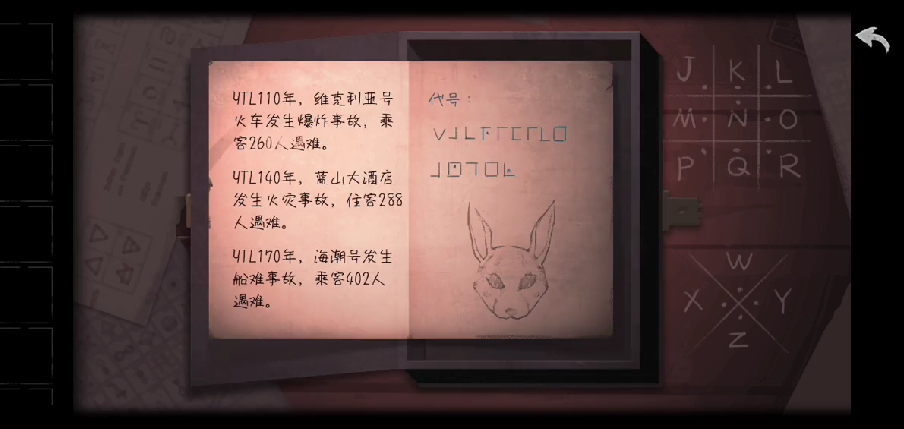 YTL110年，维克利亚号
火车发生爆炸事故，乘
客260人遇难。
YTL140年，蓝山大酒店
发生火灾事故，住客288
人遇难。
YTL170年，海潮号发生
船难事故，乘客402人
遇难。
代号：
J K L
M N O
P Q R
W
X Y
Z